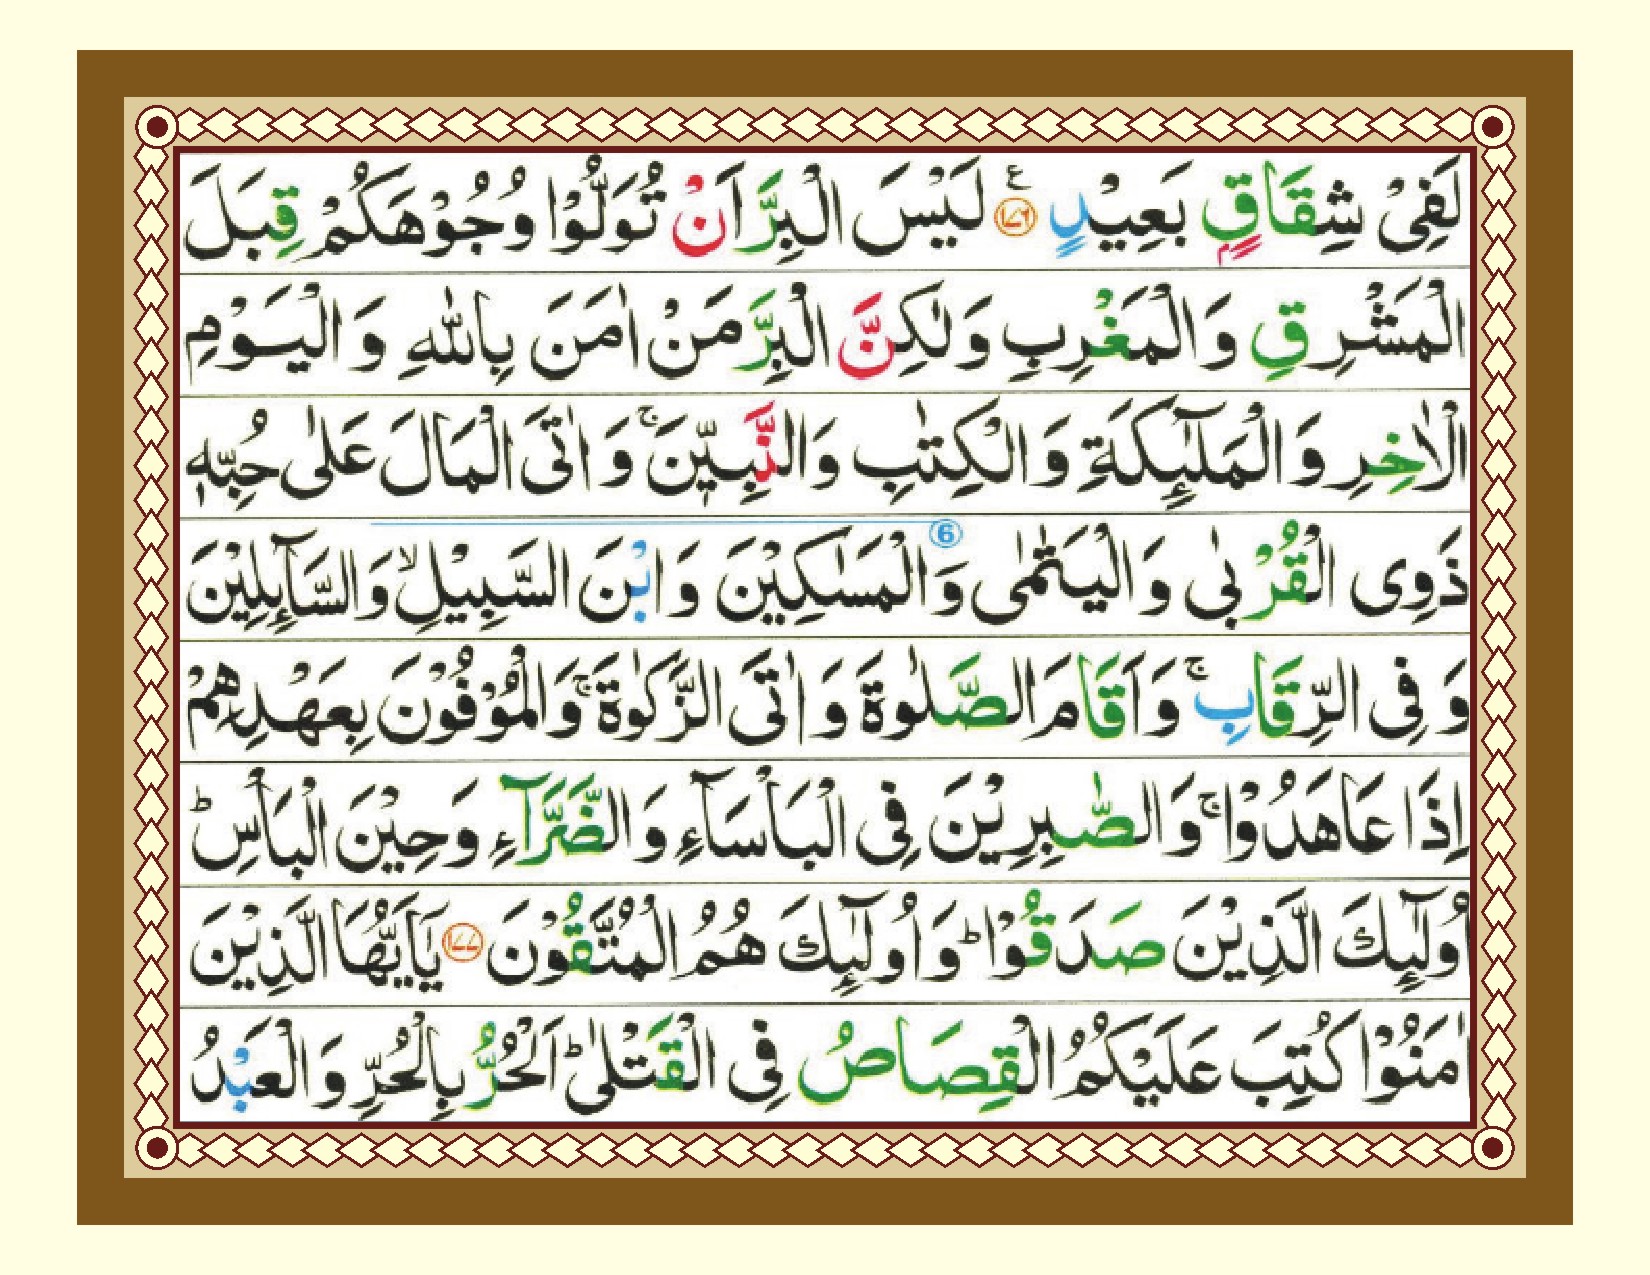 لَفِیْ شِقَاقٍۭ بَعِیْدٍ ﴿۱۷۶﴾ ع لَیْسَ الْبِرَّ اَنْ تُوَلُّوْا وُجُوْهَكُمْ قِبَلَ
الْمَشْرِقِ وَ الْمَغْرِبِ وَ لٰكِنَّ الْبِرَّ مَنْ اٰمَنَ بِاللّٰهِ وَ الْیَوْمِ
الْاٰخِرِ وَ الْمَلٰٓىِٕكَةِ وَ الْكِتٰبِ وَ النَّبِیّٖنَ ۚ وَ اٰتَی الْمَالَ عَلٰی حُبِّهٖ
ذَوِی الْقُرْبٰی وَ الْیَتٰمٰی وَ الْمَسٰكِیْنَ وَ ابْنَ السَّبِیْلِ ۙ وَ السَّآىِٕلِیْنَ 6
وَ فِی الرِّقَابِ ۚ وَ اَقَامَ الصَّلٰوةَ وَ اٰتَی الزَّكٰوةَ ۚ وَ الْمُوْفُوْنَ بِعَهْدِهِمْ
اِذَا عَاهَدُوْا ۚ وَ الصّٰبِرِیْنَ فِی الْبَاْسَآءِ وَ الضَّرَّآءِ وَ حِیْنَ الْبَاْسِ ؕ
اُولٰٓىِٕكَ الَّذِیْنَ صَدَقُوْا ؕ وَ اُولٰٓىِٕكَ هُمُ الْمُتَّقُوْنَ ﴿۱۷۷﴾ یٰۤاَیُّهَا الَّذِیْنَ
اٰمَنُوْا كُتِبَ عَلَیْكُمُ الْقِصَاصُ فِی الْقَتْلٰی ؕ اَلْحُرُّ بِالْحُرِّ وَ الْعَبْدُ